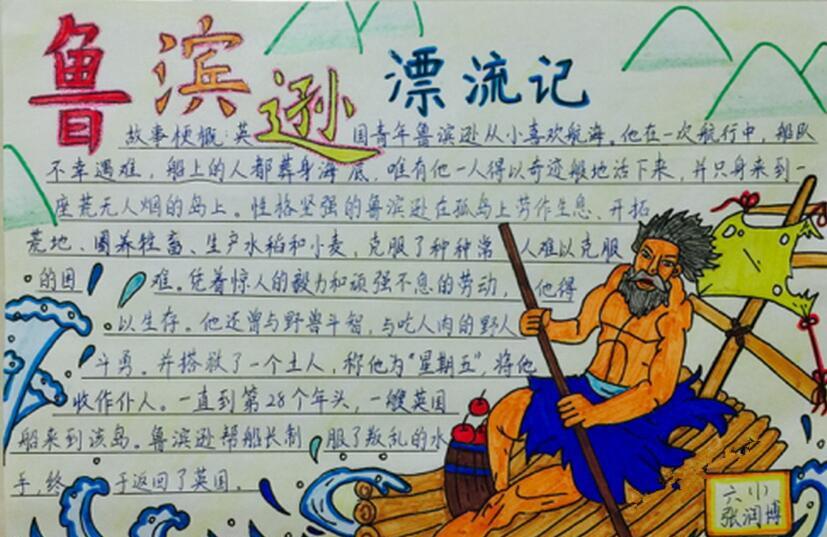 鲁滨逊漂流记
故事梗概:英国青年鲁滨逊从小喜欢航海。他在一次航行中,船队
不幸遇难,船上的人都葬身海底,唯有他一人得以奇迹般地活下来,并只身来到一
座荒无人烟的岛上。性格坚强的鲁滨逊在孤岛上劳作生息、开拓
荒地、圈养牲畜、生产水稻和小麦,克服了种种常人难以克服
的困难。凭着惊人的毅力和顽强不息的劳动,他得
以生存。他还曾与野兽斗智,与吃人肉的野人
斗勇。并搭救了一个土人,称他为“星期五”,将他
收作仆人。一直到第28个年头,一艘英国
船来到该岛。鲁滨逊帮船长制服了叛乱的水
手,终于返回了英国。
六(1)
张润博